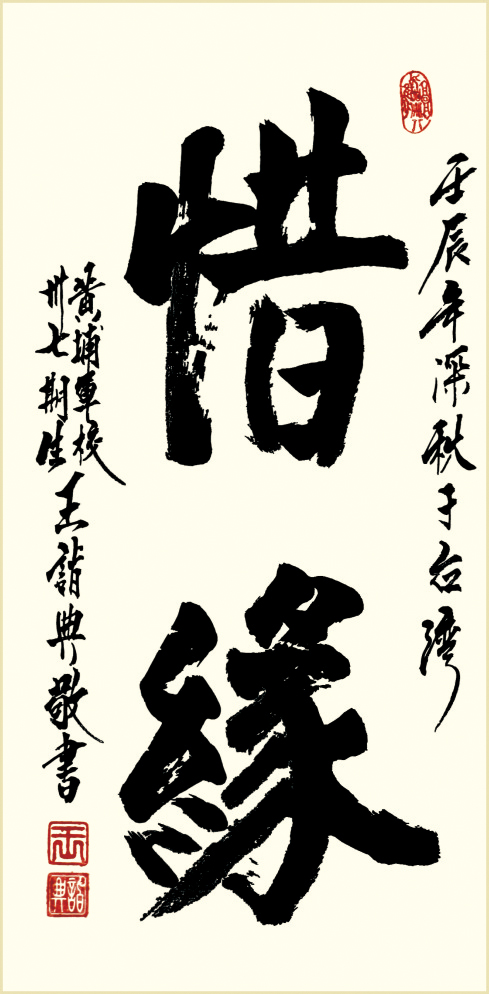 壬辰年深秋于台灣
惜緣
黃埔軍校
卅七期生
王詣典敬書
王
詣典